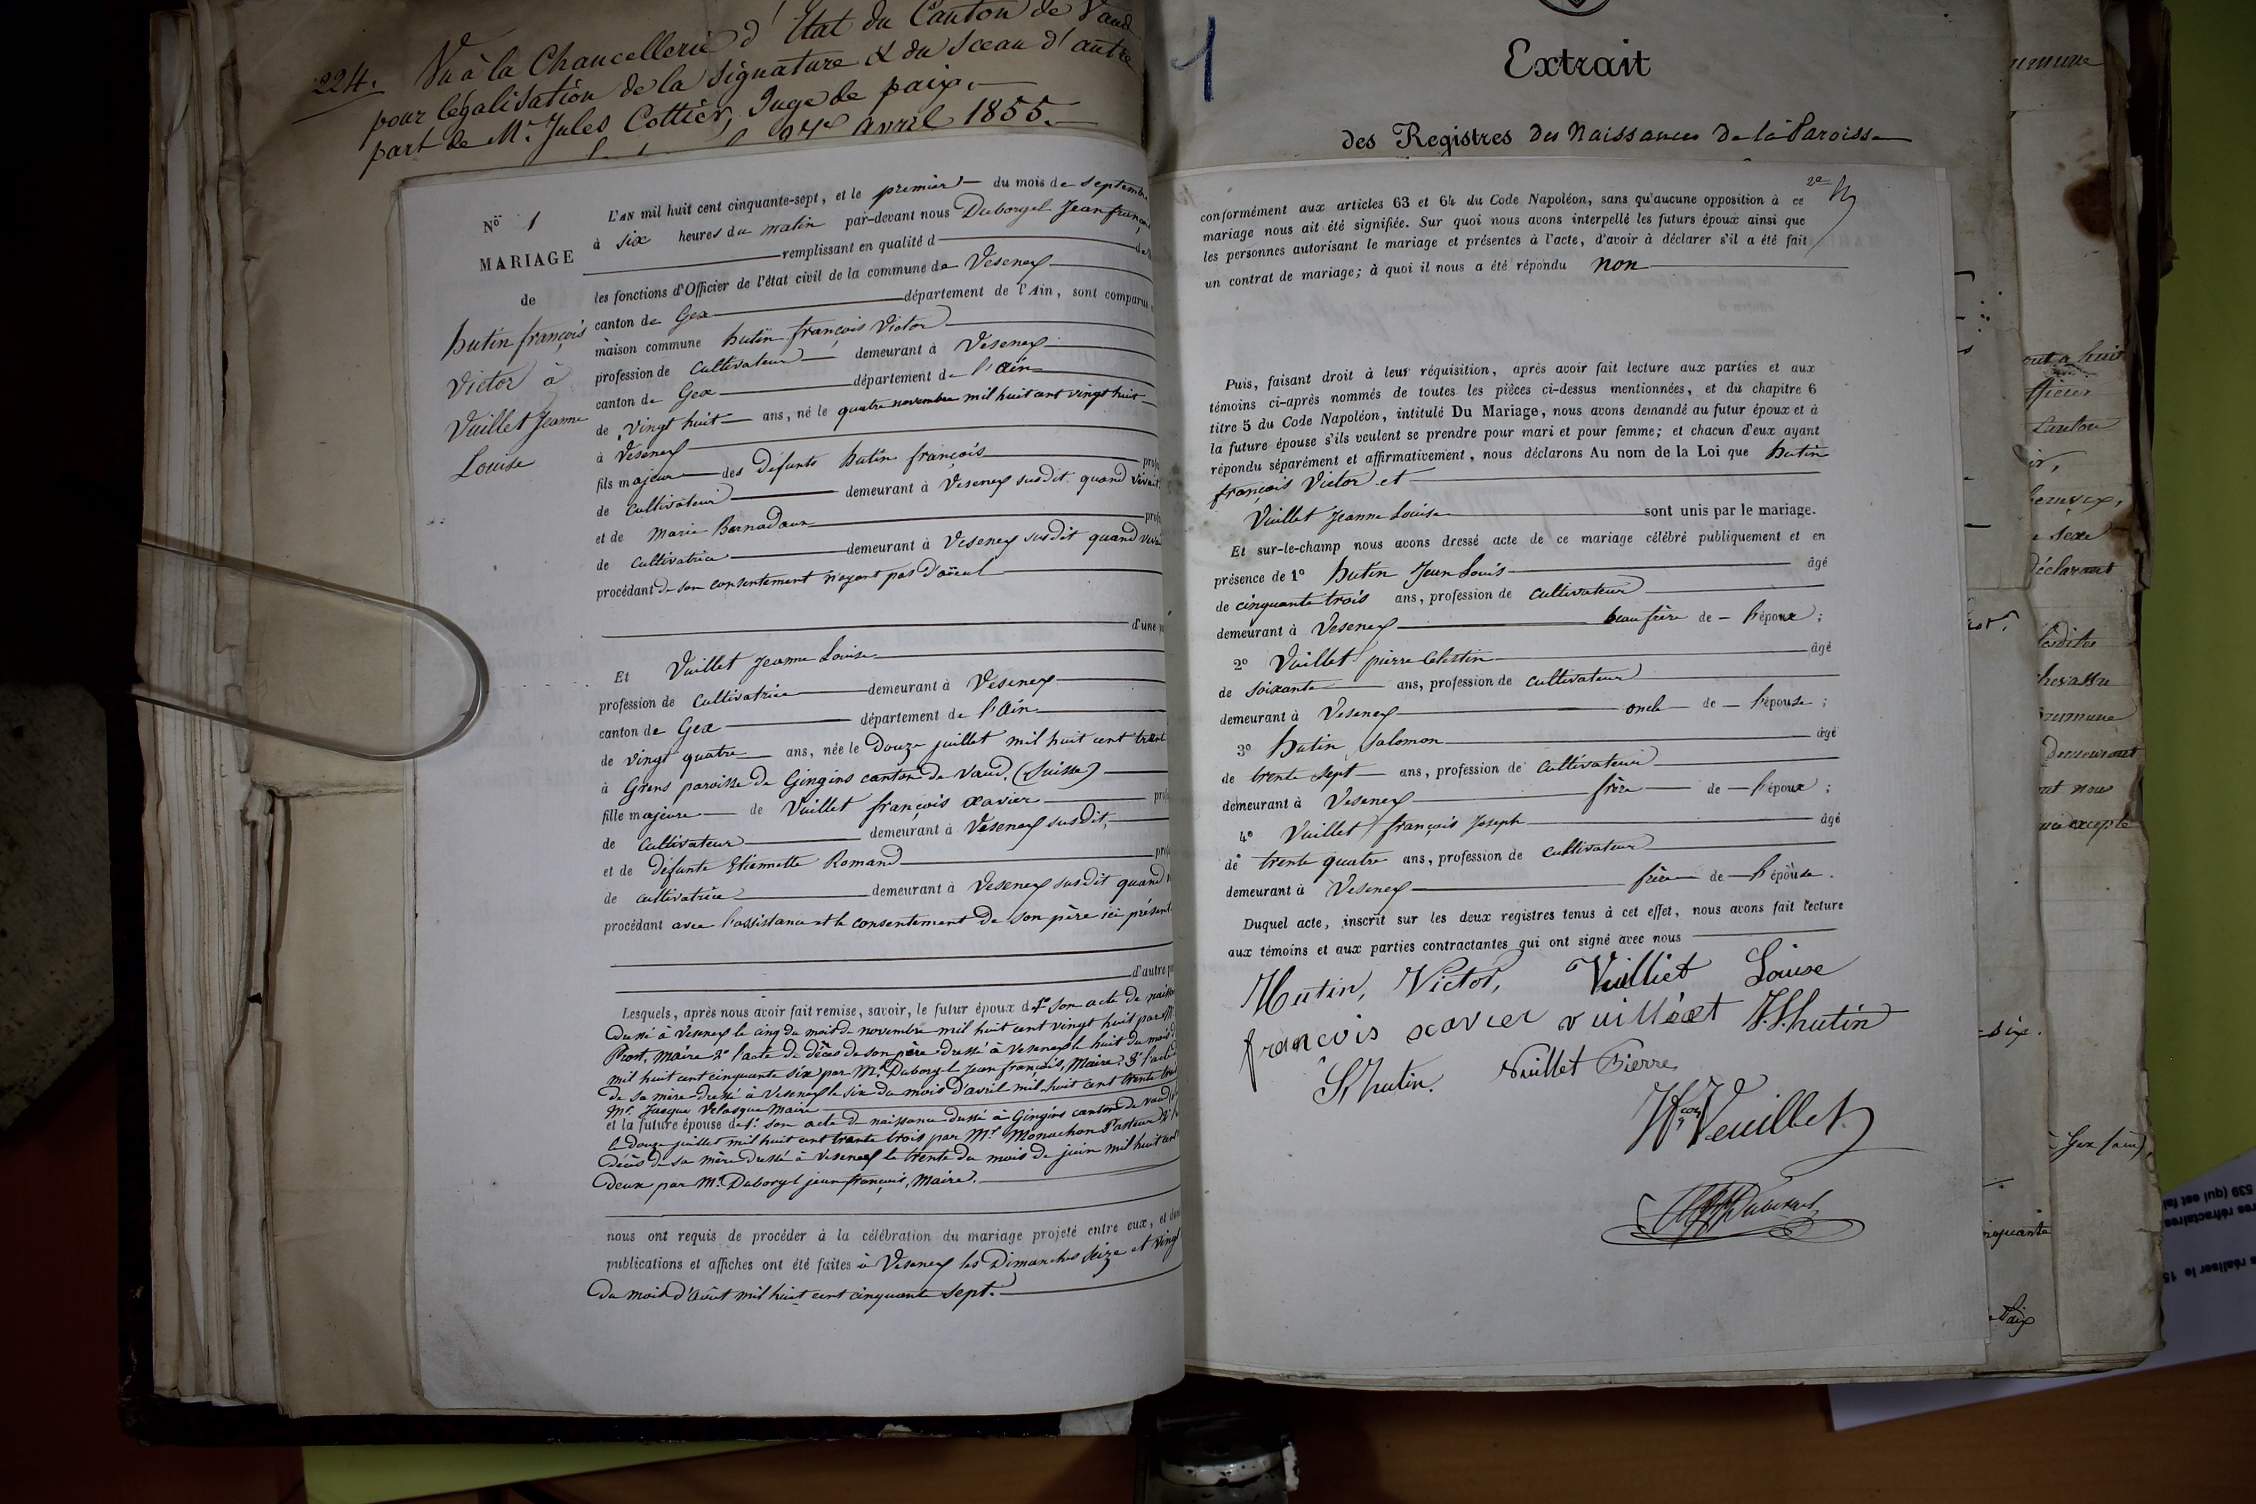 224. Vu à la Chancellerie d'Etat du Canton de Vaud
pour légalisation de la signature & du sceau d'autre
part de Mr. Jules Cottier, Juge de paix.
avril 1855.
No 1
MARIAGE
de
hutin françois
Victor à
Vuillet Jeanne
Louise
L'AN mil huit cent cinquante-sept, et le premier du mois de septembre
à six heures du matin par-devant nous Duborgel Jean françois
remplissant en qualité d
les fonctions d'Officier de l'état civil de la commune de Vesenex
canton de Gex département de l'Ain, sont comparus
maison commune hutin françois Victor
profession de cultivateur demeurant à Vesenex
canton de Gex département de l'Ain
de vingt huit ans, né le quatre novembre mil huit cent vingt huit
à Vesenex
fils majeur des défunts hutin françois
de cultivateur demeurant à Vesenex susdit quand vivait
et de Marie Barnadaux
de cultivatrice demeurant à Vesenex susdit quand
procédant de son consentement n'ayant pas d'aïeul
d'une
Et Vuillet Jeanne Louise
profession de cultivatrice demeurant à Vesenex
canton de Gex département de l'Ain
de vingt quatre ans, née le douze juillet mil huit cent
à Grens paroisse de Gingins canton de Vaud (Suisse)
fille majeure de Vuillet françois xavier
de cultivateur demeurant à Vesenex susdit,
et de défunte Etiennette Romand
de cultivatrice demeurant à Vesenex susdit quand
procédant avec l'assistance et le consentement de son père ici présent
d'autre
Lesquels, après nous avoir fait remise, savoir, le futur époux d 1o son acte de
dressé à Vesenex le cinq du mois de novembre mil huit cent vingt huit par Mr
Prost, maire 2o l'acte de décès de son père dressé à Vesenex le huit du mois
mil huit cent cinquante six par Mr. Duborgel Jean françois, Maire, 3o l'acte
de sa mère dressé à Vesenex le six du mois d'avril mil huit cent trente
Mr. Maire
et la future épouse de 1o son acte de naissance dressé à Gingins canton de Vaud
le douze juillet mil huit cent trente trois par Mr Monachon Pasteur
décès de sa mère dressé à Vesenex le trente du mois de juin mil huit cent
deux par Mr. Duborgel jean françois, Maire.
nous ont requis de procéder à la célébration du mariage projeté entre eux, et
publications et affiches ont été faites à Vesenex les Dimanches seize et vingt
du mois d'août mil huit cent cinquante sept.
1
Extrait
des Registres des Naissances de la Paroisse
2e
conformément aux articles 63 et 64 du Code Napoléon, sans qu'aucune opposition à ce
mariage nous ait été signifiée. Sur quoi nous avons interpellé les futurs époux ainsi que
les personnes autorisant le mariage et présentes à l'acte, d'avoir à déclarer s'il a été fait
un contrat de mariage; à quoi il nous a été répondu non
Puis, faisant droit à leur réquisition, après avoir fait lecture aux parties et aux
témoins ci-après nommés de toutes les pièces ci-dessus mentionnées, et du chapitre 6
titre 5 du Code Napoléon, intitulé Du Mariage, nous avons demandé au futur époux et à
la future épouse s'ils veulent se prendre pour mari et pour femme; et chacun d'eux ayant
répondu séparément et affirmativement, nous déclarons Au nom de la Loi que hutin
françois Victor et
Vuillet Jeanne Louise sont unis par le mariage.
Et sur-le-champ nous avons dressé acte de ce mariage célébré publiquement et en
présence de 1o hutin Jean Louis âgé
de cinquante trois ans, profession de cultivateur
demeurant à Vesenex beau frère de l'époux;
2o Vuillet pierre Celestin âgé
de soixante ans, profession de cultivateur
demeurant à Vesenex oncle de l'épouse;
3o hutin salomon âgé
de trente sept ans, profession de cultivateur
demeurant à Vesenex frère de l'époux;
4o Vuillet françois Joseph âgé
de trente quatre ans, profession de cultivateur
demeurant à Vesenex frère de l'épouse.
Duquel acte, inscrit sur les deux registres tenus à cet effet, nous avons fait lecture
aux témoins et aux parties contractantes qui ont signé avec nous
Hutin, Victor, Vuilliet Louise
francois xavier vuilléet J.L. hutin
S, hutin. Vuillet Pierre
Veuillet
Duborgel